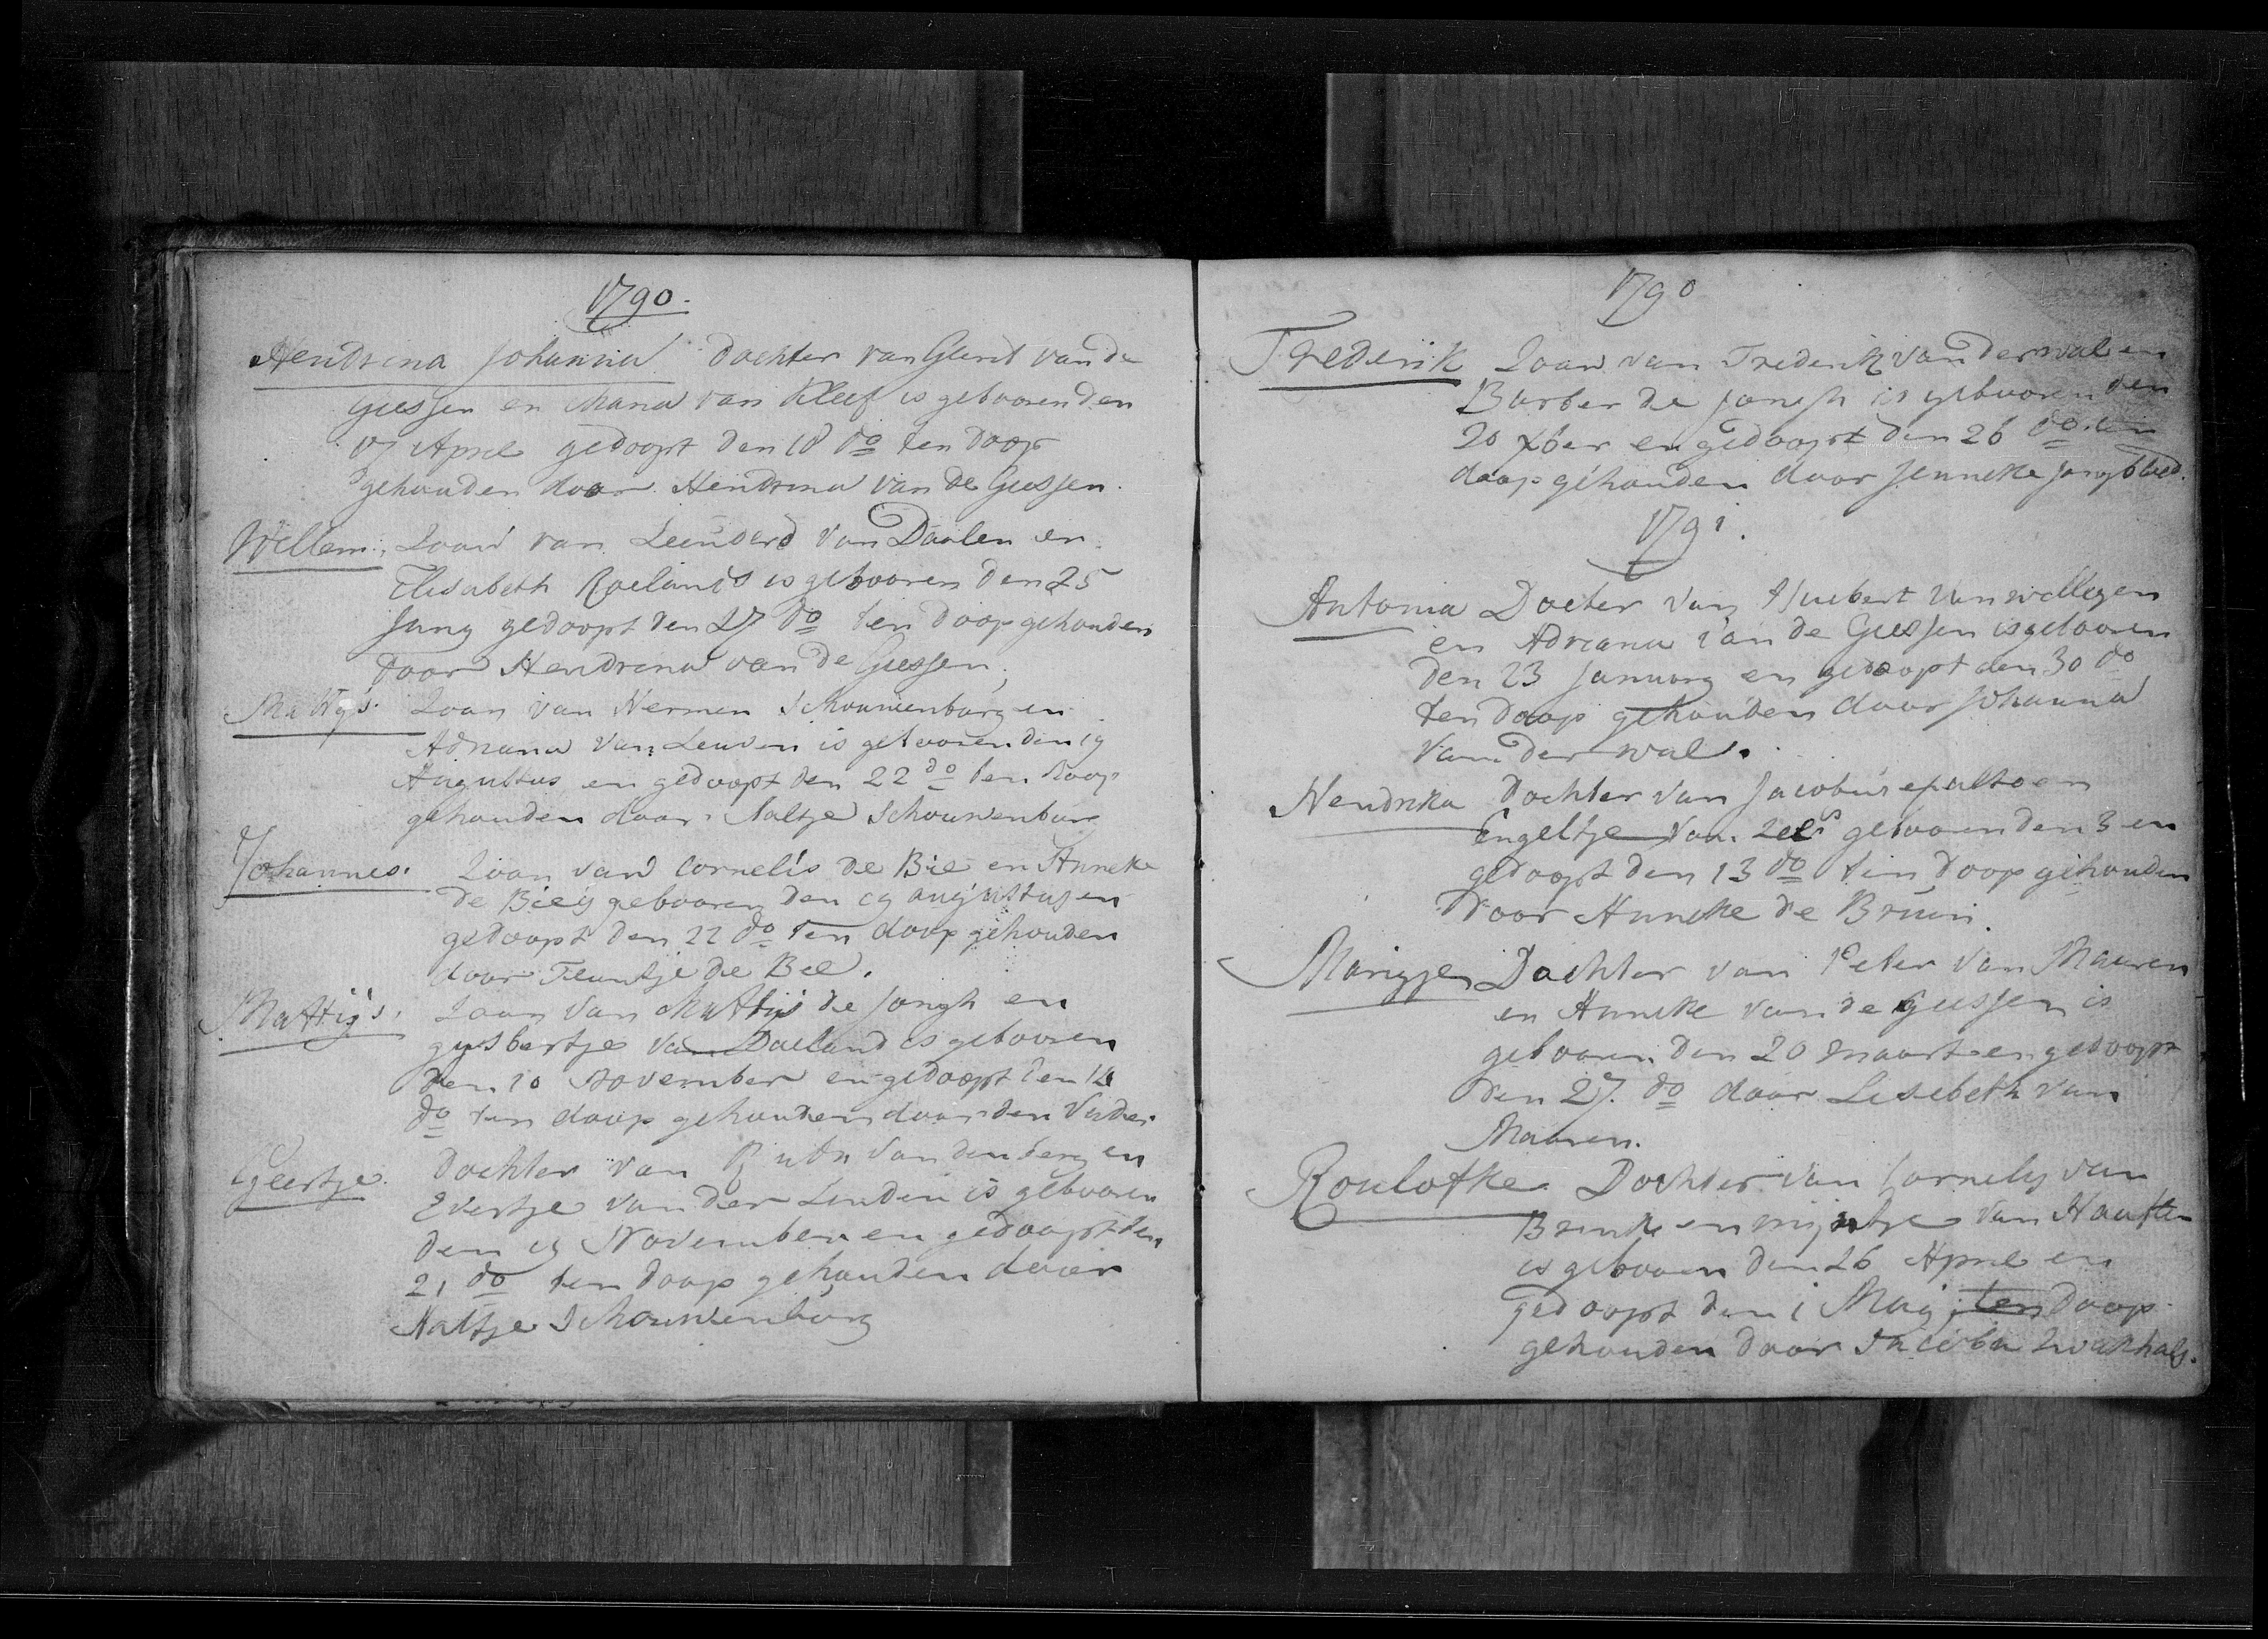 1790.
Hendrina Johanna dochter van Gerrit van de
Giessen en Maria van Kleef is gebooren den
April gedoopt den 18 do ten doop
gehouden door Hendrina van de Giessen.
Willem. Zoon van Leenderd van Daalen en
Elisabeth Roelands is gebooren den 25
Juny gedoopt den 27 do ten doop gehouden
door Hendrina van de Giessen,
Mattys. Zoon van Hermen Schouwenburg en
Adriana van Leuven is gebooren den 19
Augustus en gedoopt den 22 do ten doop
gehouden door Aaltje Schouwenburg
Johannes. Zoon van Cornelis de Bie en Anneke
de Bie is gebooren den 19 augustus en
gedoopt den 22 do ten doop gehouden
door Teuntje de Bie.
Mattijs. Zoon van Mattijs de Jongh en
gysbertje van Daeland is gebooren
den 10 November en gedoopt den 14
do ten doop gehouden door den Vader
Geertje. Dochter van van den berg en
Evertje van der Linden is gebooren
den 19 November en gedoopt den
21 do ten doop gehouden door
Aaltje Schouwenburg
1790
Frederik Zoon van Frederik van der wal en
Barber de Jongh is gebooren den
20 Xber en gedoopt den 26 do ten
doop gehouden door Jenneke Jongbloed.
1791.
Antonia Docter van Huibert van wellegen
en Adriana van de Giessen is gebooren
den 23 January en gedoopt den 30 do
ten doop gehouden door Johanna
van der wal.
Hendrika dochter van Jacobus en
Engeltje van Zee is gebooren den 3 en
gedoopt den 13 do ten doop gehouden
Door Anneke de Bruin.
Marigje Dochter van Peter van Maaren
en Anneke van de Giessen is
gebooren den 20 maart en gedoopt
den 27. do door Lisebeth van
Maaren.
Roulofke Dochter van Cornelis van
Brenk en mijntje van Haaften
is gebooren den 26 April en
gedoopt den 1 May ten doop
gehouden door Jacoba Zwakhals.